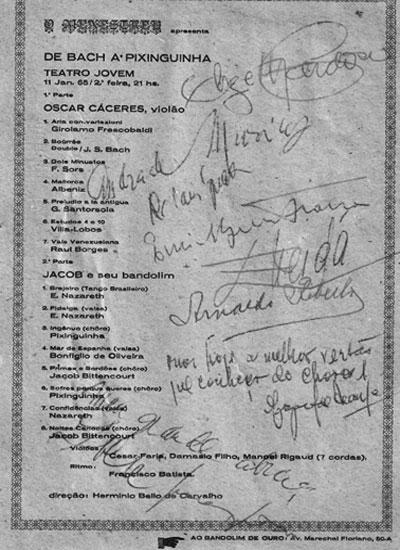 O MENESTREL apresenta
DE BACH A PIXINGUINHA
TEATRO JOVEM
11 Jan. 65/2.ª feira, 21 hs.
1.ª Parte
OSCAR CÁCERES, violão
1. Aria con variazioni
Girolamo Frescobaldi
2. Bourrée
Double / J. S. Bach
3. Dois Minuetos
F. Sors
4. Mallorca
Albeniz
5. Preludio a la antigua
G. Santorsola
6. Estudos 4 e 10
Villa-Lobos
7. Vals Venezuelana
Raul Borges
2.ª Parte
JACOB e seu bandolim
1. Brejeiro (Tango Brasileiro)
E. Nazareth
2. Fidalga (valsa)
E. Nazareth
3. Ingênuo (chôro)
Pixinguinha
4. Mar de Espanha (valsa)
Bonfiglio de Oliveira
5. Primas e Bordões (chôro)
Jacob Bittencourt
6. Sofres porque queres (chôro)
Pixinguinha
7. Confidências (valsa)
Nazareth
8. Noites Cariocas (chôro)
Jacob Bittencourt
Violões:
Cesar Faria, Damasio Filho, Manoel Rigaud (7 cordas).
Ritmo:
Francisco Batista.
direção: Herminio Bello de Carvalho
AO BANDOLIM DE OURO: Av. Marechal Floriano, 50-A
Elizeth Cardoso
Arnaldo
a melhor
que conheço do choro